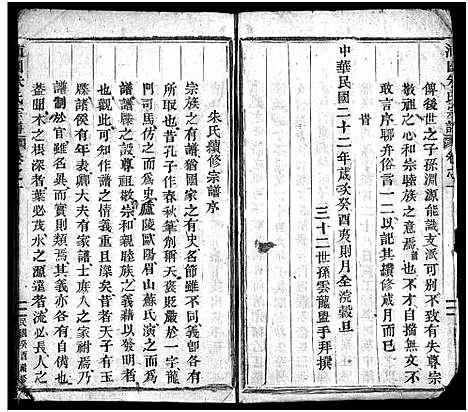 俾後世之子孫淵源能識支派可敦有失尊宗
敬祖之心和宗睦族之意焉雲也不才自揣無文不
敢言序聊弁俗言一以記其續修歲月而已
旹
中華民國二十二年歲次癸酉夷則月全浣穀旦
三十二世孫雲龍盥手拜撰
朱氏續修宗譜序
宗族之有譜猶國家之有史名節雖不同義卽各有
取焉昔孔子作春秋筆創稱天褒貶嚴於一字龍
門司馬仿之而為史盧陵歐陽眉山蘇氏演之而為
譜譜牒之式尊祖敬宗和親睦族之義藉以發明者
也觀此可知作譜之情義重且遠矣昔者天子有玉
牒諸侯有年表卿大夫有家譜士庶人之家祔焉乃
譜制於官雖名異而實則類焉其義亦各有意焉
蓋聞木之根深者葉必茂水之源遠者流必長人之